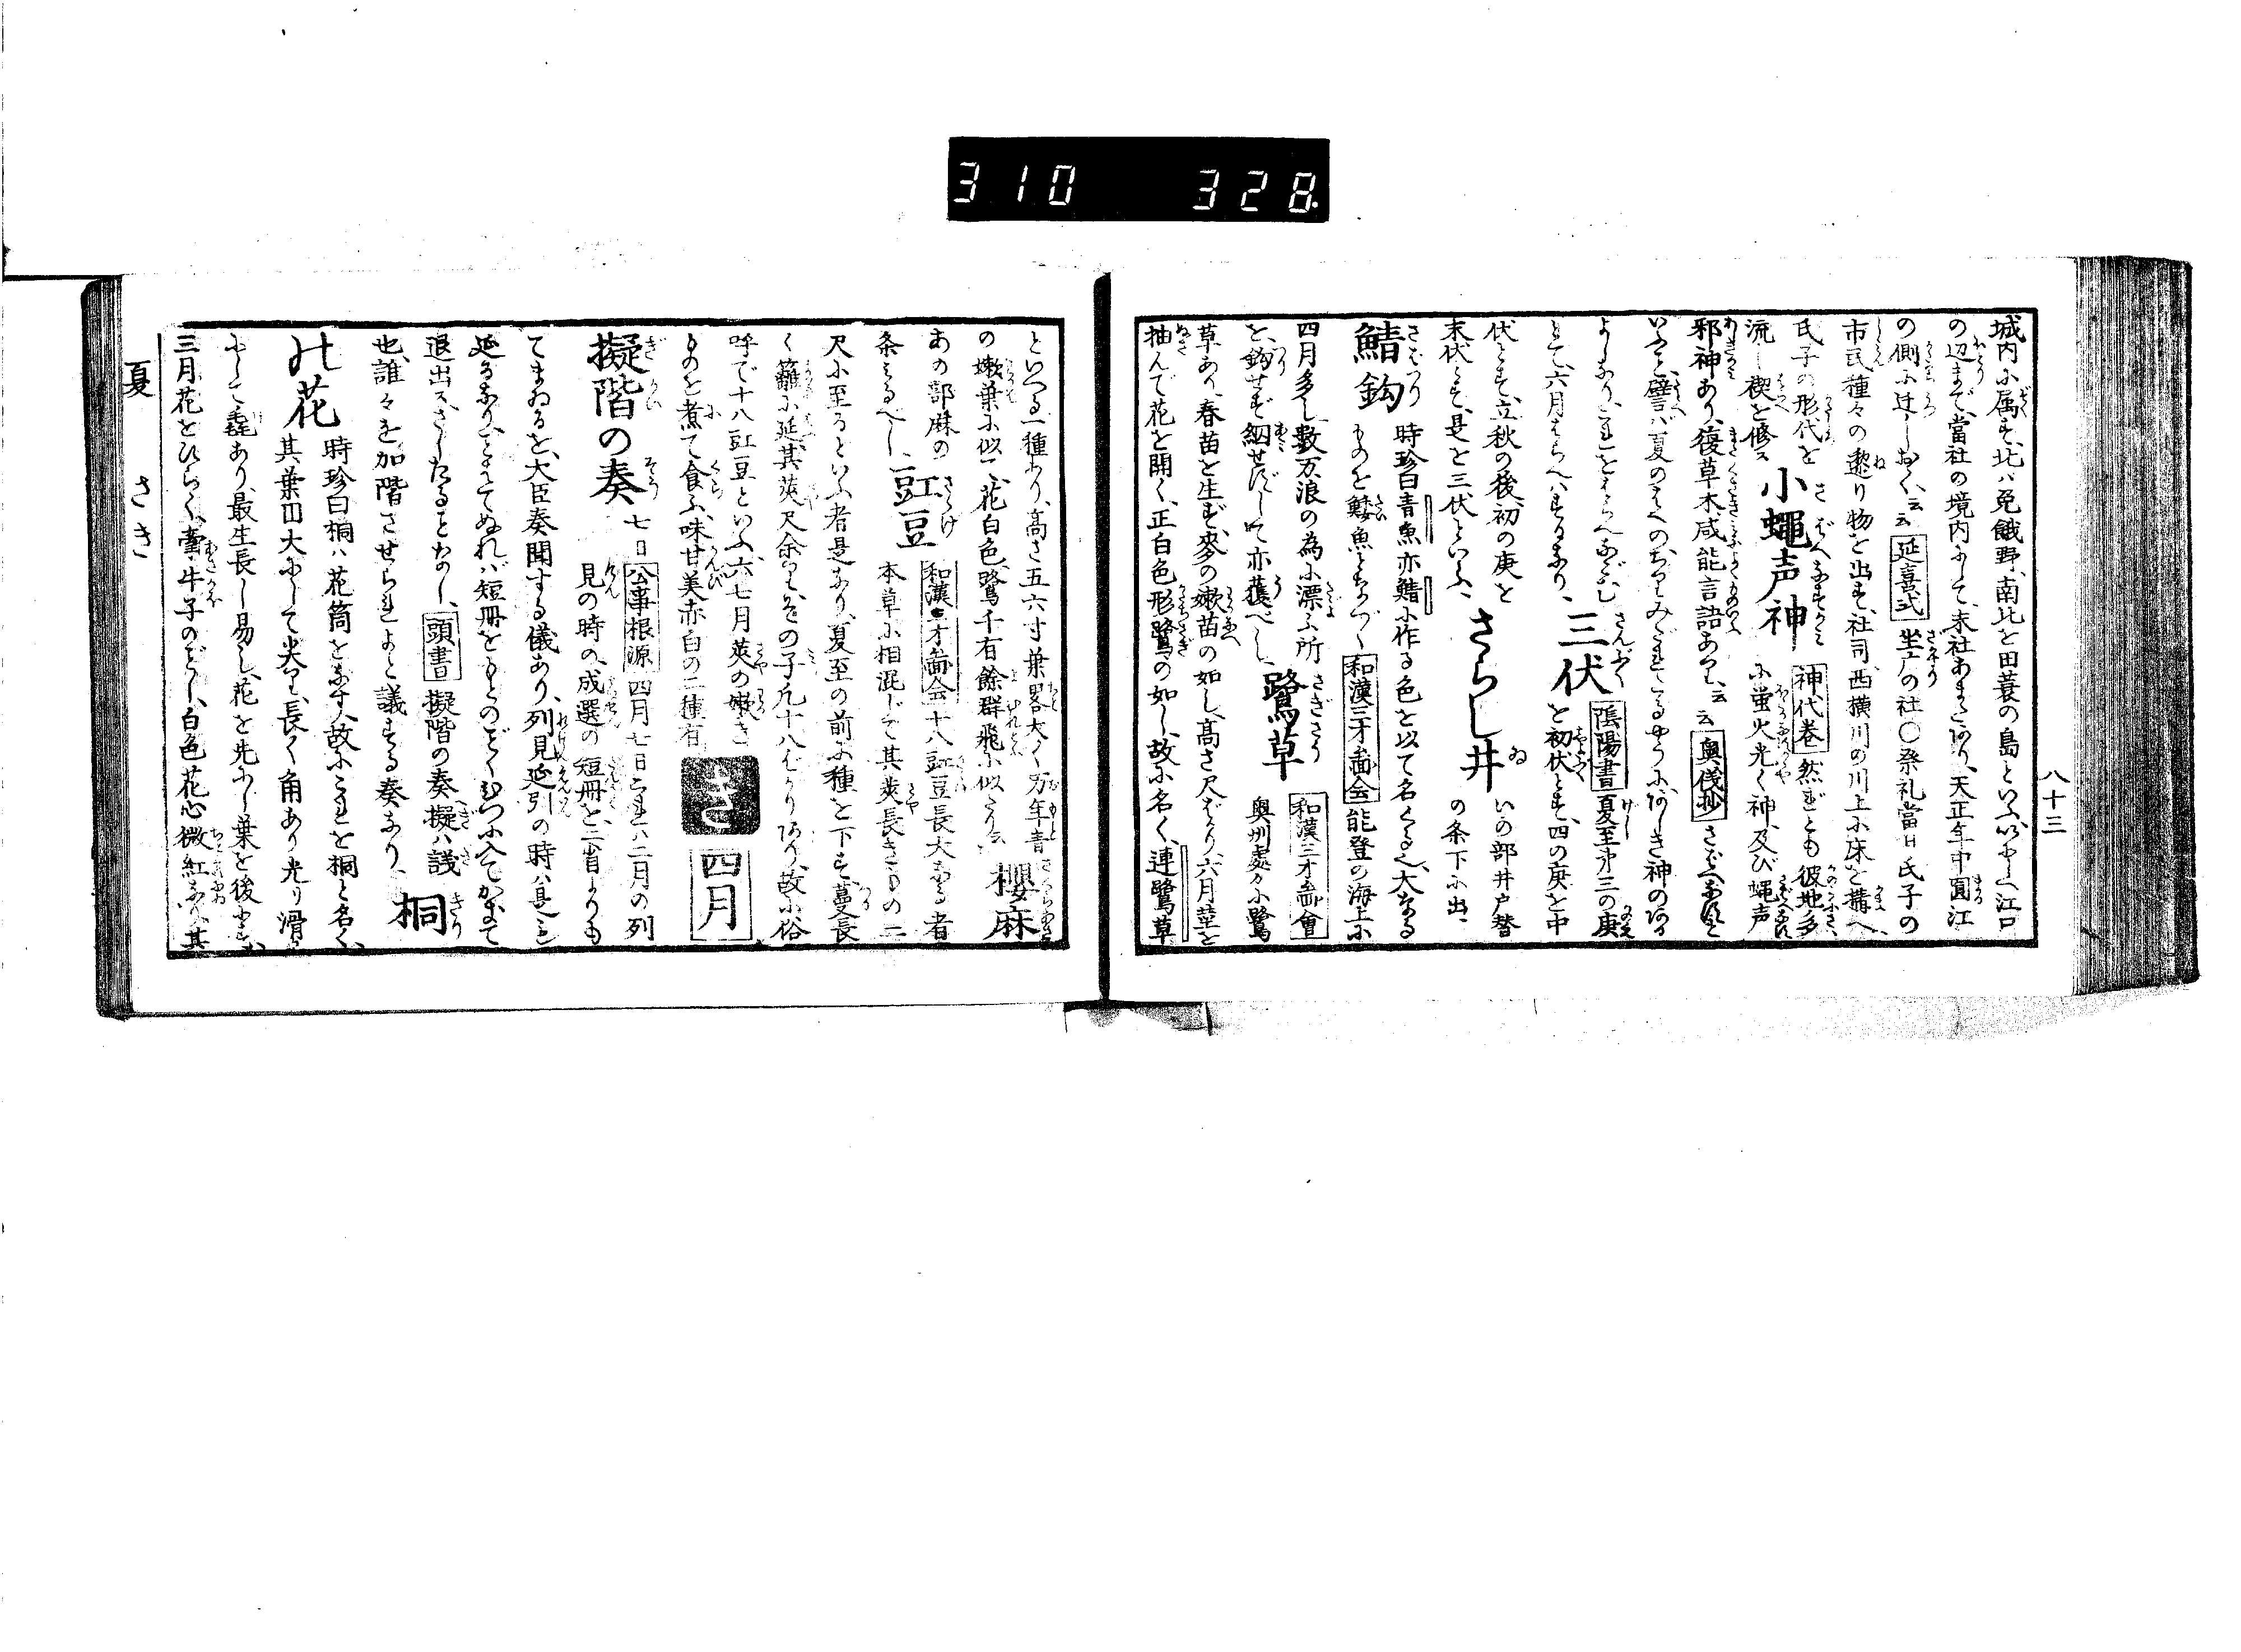 310 328
八十三
城内に属す、北ハ免餓野、南北を田蓑の島といふ、いにしへ江口
の辺まで、當社の境内にして、末社あまたあり、天正年中圓江
の側に辻しおく、云云 延喜式 坐广の社〇祭礼當日氏子の
市民種々の邌り物を出す、社司、西横川の川上に床を構へ、
氏子の形代を
流し禊を修ス
小蠅声神
神代巻 然れども彼地多
に蛍火光く神、及び蠅声
邪神あり、復草木咸能言語あり、云云 奥儀抄 さばへなすと
いふと、譬ば夏のはへのちりみだれてゐるやうに、あしき神のある
よしなり、これをはらへなごむ
とて、六月はらへハするなり、
三伏
陰陽書 夏至才三の庚
を初伏とす、四の庚を中
伏とす、立秋の後、初の庚を
末伏とす、是を三伏といふ、
さらし井
いの部井戸替
の条下に出
鯖釣
時珍曰青魚亦鯖に作る色を以て名くる也、大なる
ものを鰀魚となづく 和漢三才圖会 能登の海上に
四月多し、数万浪の為に漂ふ所
を、釣せず網せずして亦獲べし、
鷺草
和漢三才圖會
奥州處々に鷺
草あり、春苗を生ず、麥の嫩苗の如し、高さ尺ばかり、六月莖を
抽んで花を開く、正白色形鷺の如し、故に名く、連鷺草
といへる一種あり、高さ五六寸葉畧大く万年青
の嫩葉に似て、花白色、鷺千有餘群飛に似たり云
櫻麻
あの部麻の
条みるべし、
豇豆
和漢三才圖会 十八豇豆長大なる者
本草に相混じて其莢長きもの二
尺に至るといふ者是なり、夏至の前に種を下す、蔓長
く籬に延、其莢尺余、その子凡十八ばかりあり、故に俗
呼で十八豇豆といふ、六七月莢の嫩き
ものを煮て食ふ、味甘美赤白の二種有
き
四月
擬階の奏
七日 公事根源 四月七日これハ二月の列
見の時の、成選の短冊を、二省よりも
てまゐるを、大臣奏聞する儀あり、列見延引の時ハ是も
延るなり、ことはてぬれバ短冊をもとのごくひつに入てかさねて
退出ス、さしたることなし、 頭書 擬階の奏擬ハ議
也、誰々を加階させられよと議する奏なり
桐
の花
時珍曰桐ハ花筒をなす、故にこれを桐と名く、
其葉円大にして尖り、長く角あり光リ滑か
にして毳あり、最生長し易し、花を先にし葉を後にす、
三月花をひらく、牽牛子のごとし、白色花心微紅なり、其
夏 さき